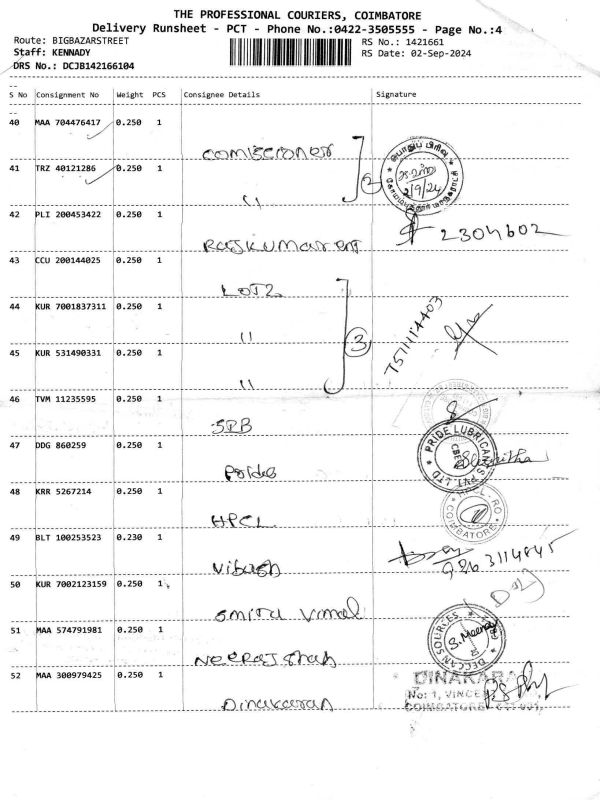 THE PROFESSIONAL COURIERS, COIMBATORE
Delivery Runsheet - PCT - Phone No.:0422-3505555 - Page No.:4
Route: BIGBAZARSTREET
RS No.: 1421661
Staff: KENNADY
RS Date: 02-Sep-2024
DRS No.: DCJB142166104
S No Consignment No Weight PCS Consignee Details Signature
40 MAA 704476417 0.250 1
2
பொதுப் பிரிவு
2/9/24
41 TRZ 40121286 0.250 1
"
42 PLI 200453422 0.250 1
2304602
43 CCU 200144025 0.250 1
44 KUR 7001837311 0.250 1
"
3
45 KUR 531490331 0.250 1
"
46 TVM 11235595 0.250 1
SPB
47 DDG 860259 0.250 1
PRIDE LUBRICANTS PVT. LTD
Pride
48 KRR 5267214 0.250 1
HPCL
HPCL - RO
COIMBATORE
49 BLT 100253523 0.230 1
50 KUR 7002123159 0.250 1
Smita Vimal
51 MAA 574791981 0.250 1
DECCAN SOURCES
S. Meena
Neeraj Shah
52 MAA 300979425 0.250 1
Dinakaran
DINAKARA
No: 1, VINCE
COIMBATORE